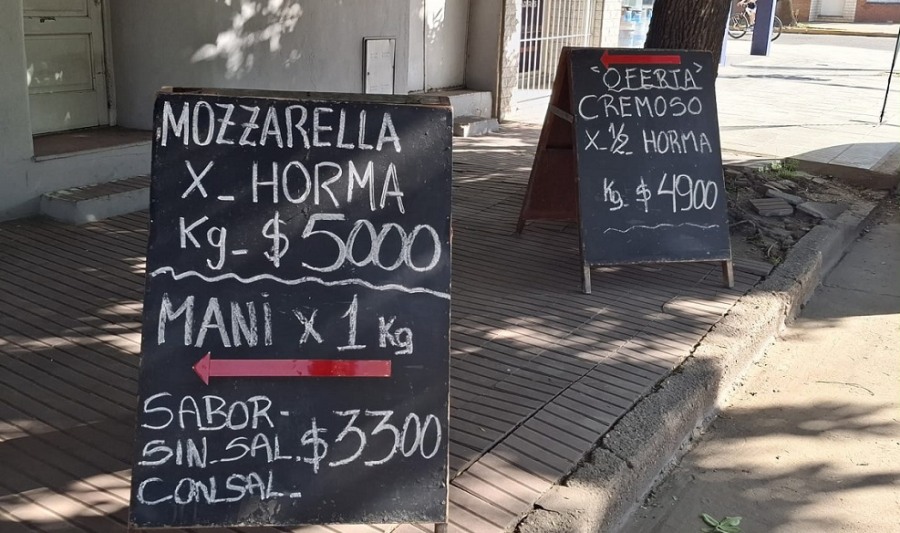 MOZZARELLA
X_HORMA
Kg_$5000
MANI X 1 Kg
SABOR-
SIN_SAL. $3300
CONSAL_
"OFERTA"
CREMOSO
X_½ HORMA
Kg. $4900